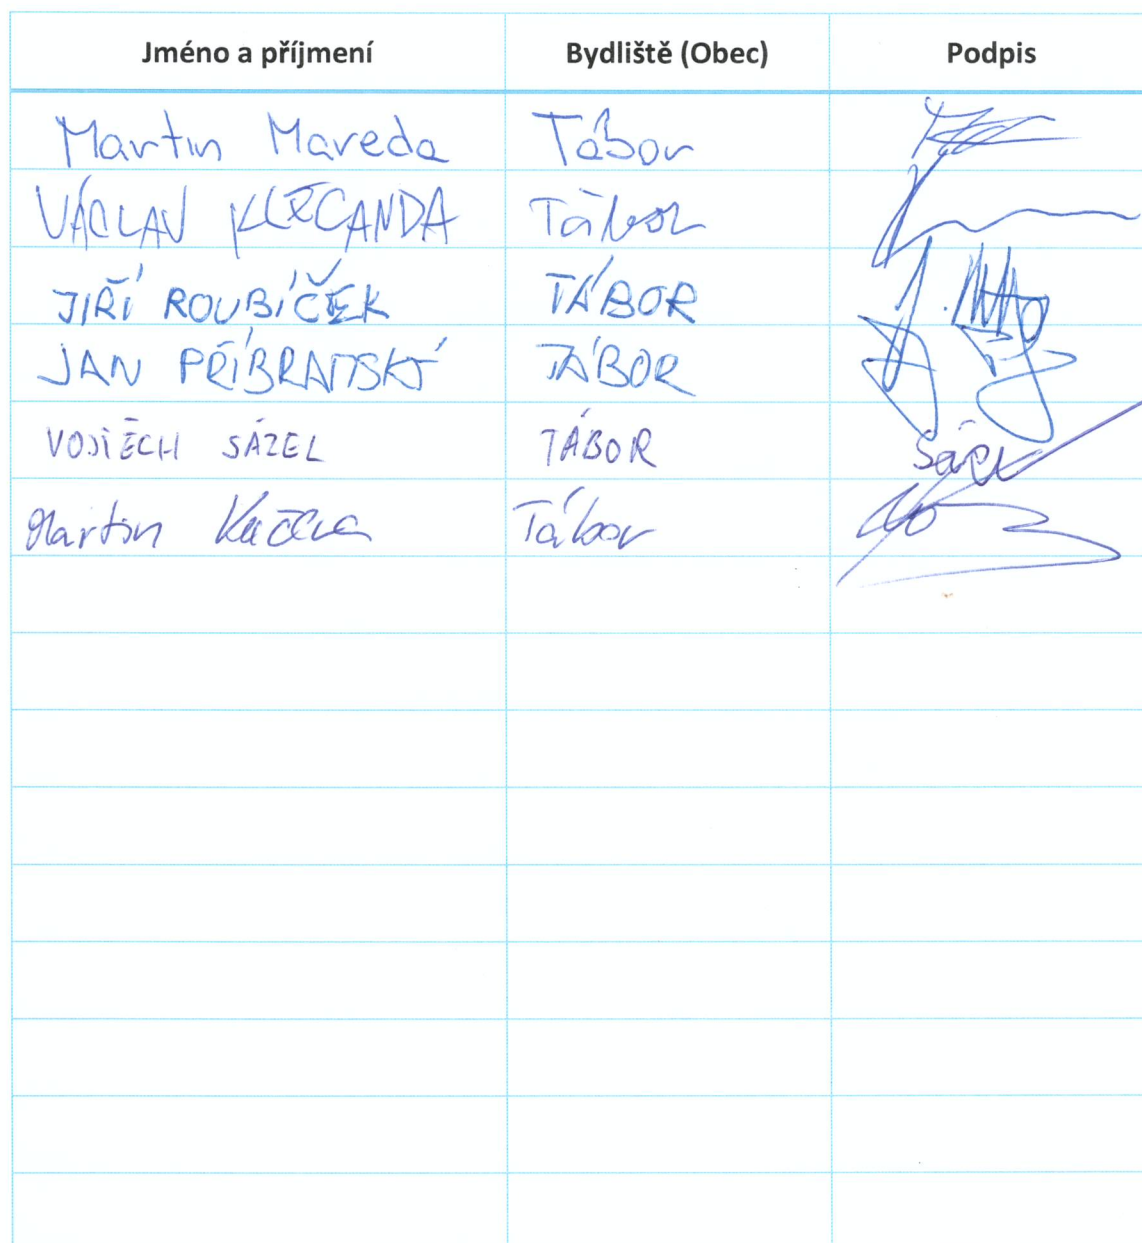 Jméno a příjmení Bydliště (Obec) Podpis
Martin Mareda Tábor
VÁCLAV KLECANDA Tábor
JIŘÍ ROUBÍČEK TÁBOR
JAN TÁBOR
VOJTĚCH SÁZEL TÁBOR
Martin Tábor